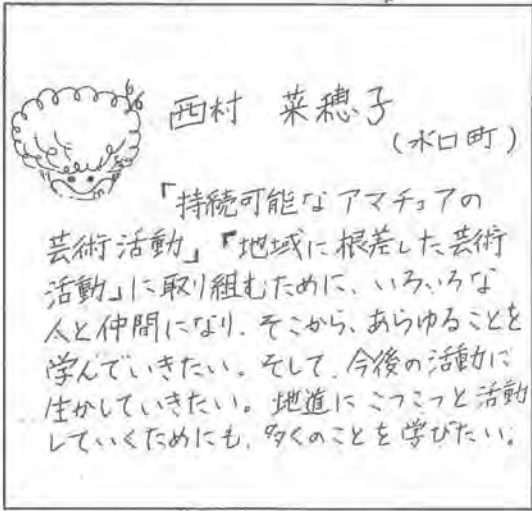 西村 菜穂子
(水口町)
「持続可能なアマチュアの
芸術活動」「地域に根差した芸術
活動」に取り組むために、いろいろな
人と仲間になり、そこから、あらゆることを
学んでいきたい。そして、今後の活動に
生かしていきたい。地道にこつこつと活動
していくためにも、多くのことを学びたい。